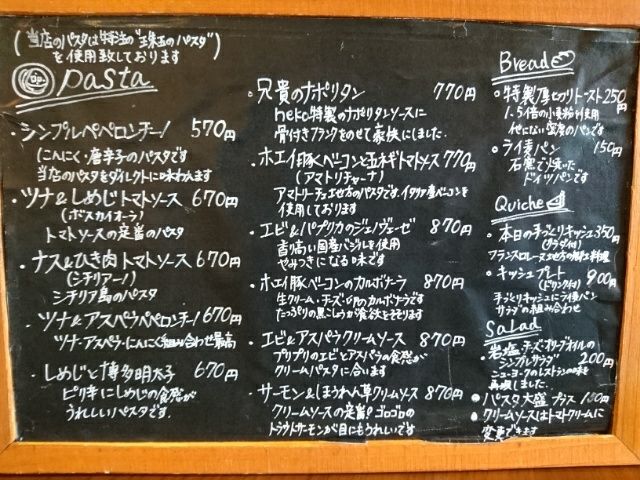 (当店のパスタは特注の"珠玉のパスタ")
を使用致しております
pasta
・シンプルペペロンチーノ 570円
(にんにく・唐辛子のパスタです
当店のパスタをダイレクトに味わえます
・ツナ&しめじトマトソース 670円
(ボスカイオーラ)
トマトソースの定番のパスタ
・ナス&ひき肉トマトソース 670円
(シチリアーノ)
シチリア島のパスタ
・ツナ&アスパラペペロンチーノ 670円
ツナ・アスパラ・にんにく組み合わせ最高
・しめじと博多明太子 670円
ピリ辛にしめじの食感が
うれしいパスタです。
・兄貴のナポリタン 770円
neko特製のナポリタンソースに
骨付きフランクをのせて豪快にしました.
・ホエイ豚ベーコンと玉ネギトマトソース 770円
(アマトリチャーナ)
アマトリーチェ地方のパスタです.イタリア産ベーコンを
使用しております
・エビ&パプリカのジェノヴェーゼ 870円
香高い国産バジルを使用
やみつきになる味です
・ホエイ豚ベーコンのカルボナーラ 870円
生クリーム・チーズ・卵のカルボナーラです
たっぷりの黒こしょうが食欲をそそります
・エビ&アスパラクリームソース 870円
プリプリのエビとアスパラの食感が
クリームパスタに合います
・サーモン&ほうれん草クリームソース 870円
クリームソースの定番!ゴロゴロの
トラウトサーモンが目にもうれしいです
Bread
・特製厚切りトースト 250円
1.5倍の小麦粉使用
他にない密度のパンです
・ライ麦パン 150円
石窯で焼いた
ドイツパンです
Quiche
・本日の手づくりキッシュ 350円
(サラダ付)
フランスロレーヌ地方の郷土料理
・キッシュプレート 900円
(ドリンク付)
手づくりキッシュにライ麦パン
サラダの組み合わせ
Salad
・岩塩・チーズ・オリーブオイルの
シンプルサラダ 200円
ニューヨークのレストランの味を
再現しました.
・パスタ大盛プラス 150円
・クリームソースはトマトクリームに
変更できます